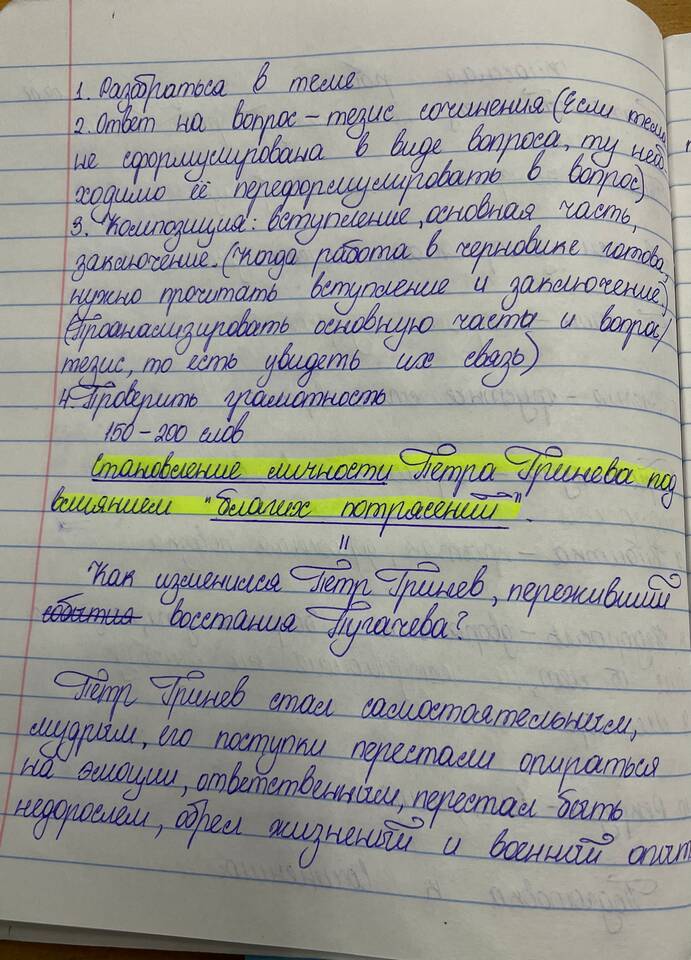 1. Разобраться в теме
2. Ответ на вопрос – тезис сочинения (Если тема
не сформулирована в виде вопроса, ту необ-
ходимо её переформулировать в вопрос)
3. Композиция: вступление, основная часть,
заключение. (Когда работа в черновике готова,
нужно прочитать вступление и заключение.)
(Проанализировать основную часть и вопрос/
тезис, то есть увидеть их связь)
4. Проверить грамотность
150 – 200 слов
Становление личности Петра Гринева под
влиянием "благих потрясений".
=
Как изменился Пётр Гринев, переживший
события восстания Пугачева?
Пётр Гринев стал самостоятельным,
мудрым, его поступки перестали опираться
на эмоции, ответственным, перестал быть
недорослем, обрел жизненый и военный опыт